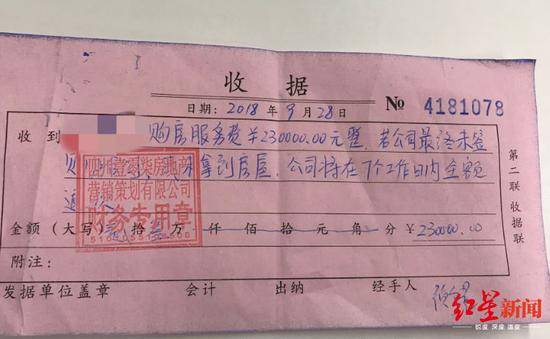 收据
日期: 2018年9月28日
№ 4181078
收到 购房服务费¥230000.00元整,若公司最终未签
拿到房屋,公司将在7个工作日内全额
退
营销策划有限公司
财务专用章
金额(大写) 贰拾叁万仟佰拾元角分¥230000.00
附注:
发据单位盖章 会计 出纳 经手人
第二联 收据联
红星新闻
锐度 深度 温度